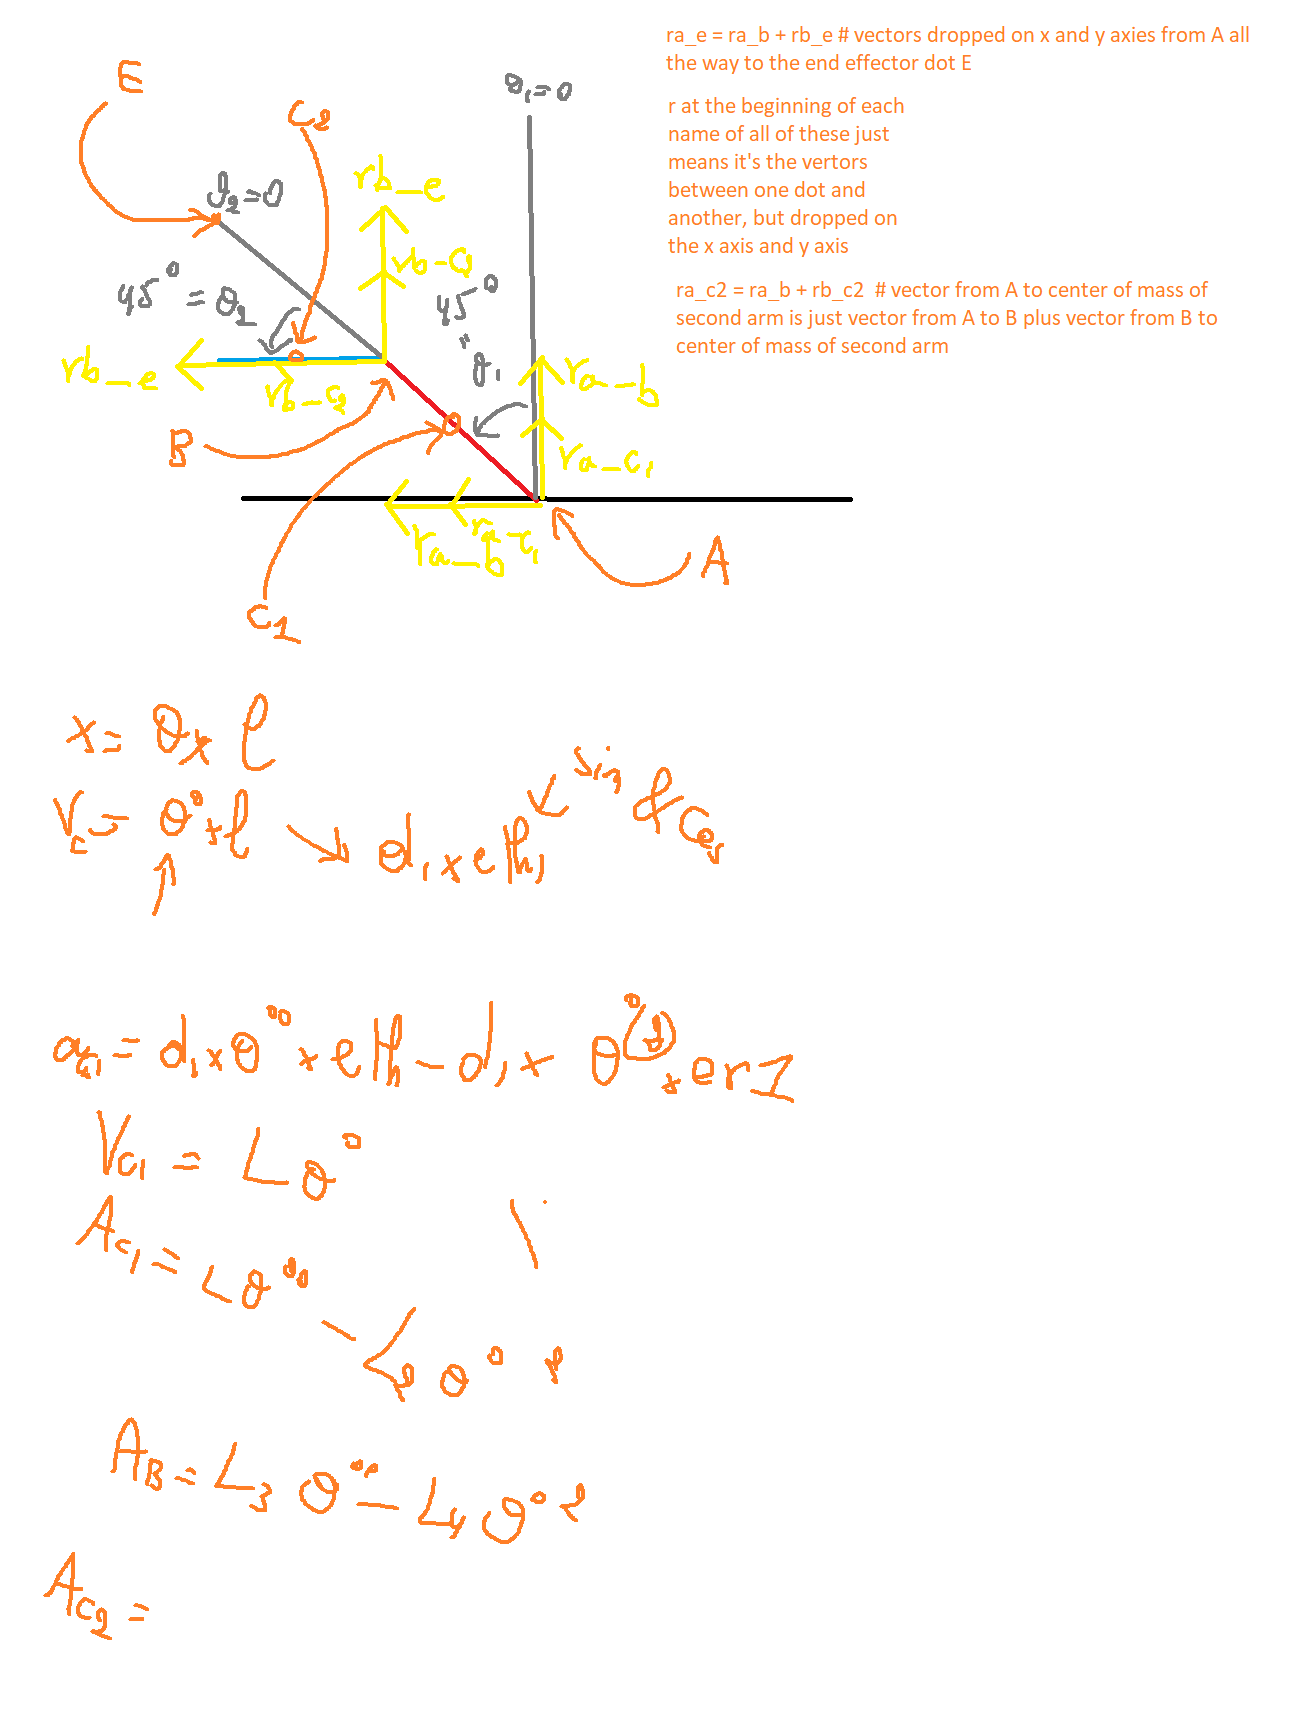 ra_e = ra_b + rb_e # vectors dropped on x and y axies from A all
the way to the end effector dot E
r at the beginning of each
name of all of these just
means it's the vertors
between one dot and
another, but dropped on
the x axis and y axis
ra_c2 = ra_b + rb_c2  # vector from A to center of mass of
second arm is just vector from A to B plus vector from B to
center of mass of second arm
E
C2
θ1=0
θ2=0
rb_e
rb-C2
45° = θ2
45°
=
θ1
rb_e
rb-c2
ra_b
B
ra_c1
ra-c1
ra_b
A
C1
x = θ x l
Vc = θ° x l
d1 x eth1
sin & cos
ac1 = d1 x θ°° x eth - d1 x θ°(2) x er1
VC1 = L θ°
AC1 = L θ°° - L2 θ° 2
AB = L3 θ°° - L4 θ° 2
AC2 =